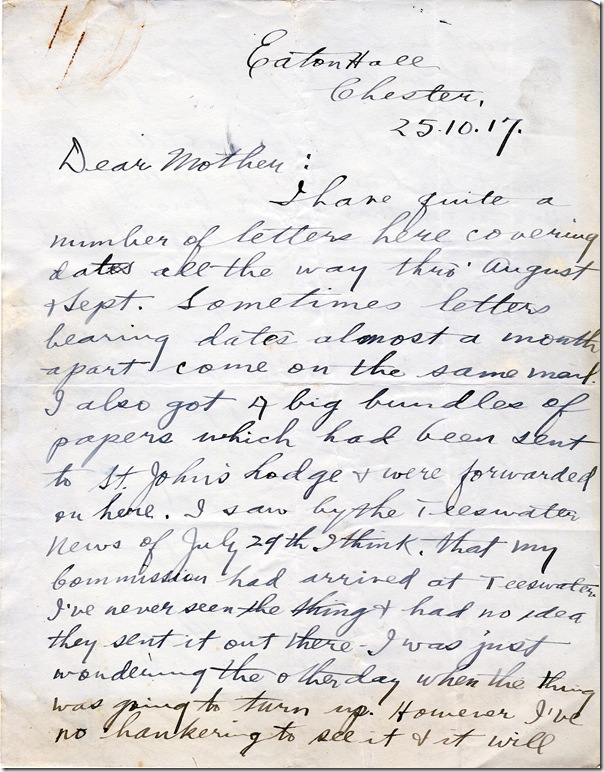 Eaton Hall
Chester,
25.10.17.
Dear Mother:
I have quite a
number of letters here covering
dates all the way thro' August
& Sept. Sometimes letters
bearing dates almost a month
apart come on the same mail.
I also got 4 big bundles of
papers which had been sent
to St. John's Lodge & were forwarded
on here. I saw by the Teeswater
News of July 29th I think. that my
Commission had arrived at Teeswater.
I've never seen the thing & had no idea
they sent it out there - I was just
wondering the other day when the thing
was going to turn up. However I've
no hankering to see it & it will